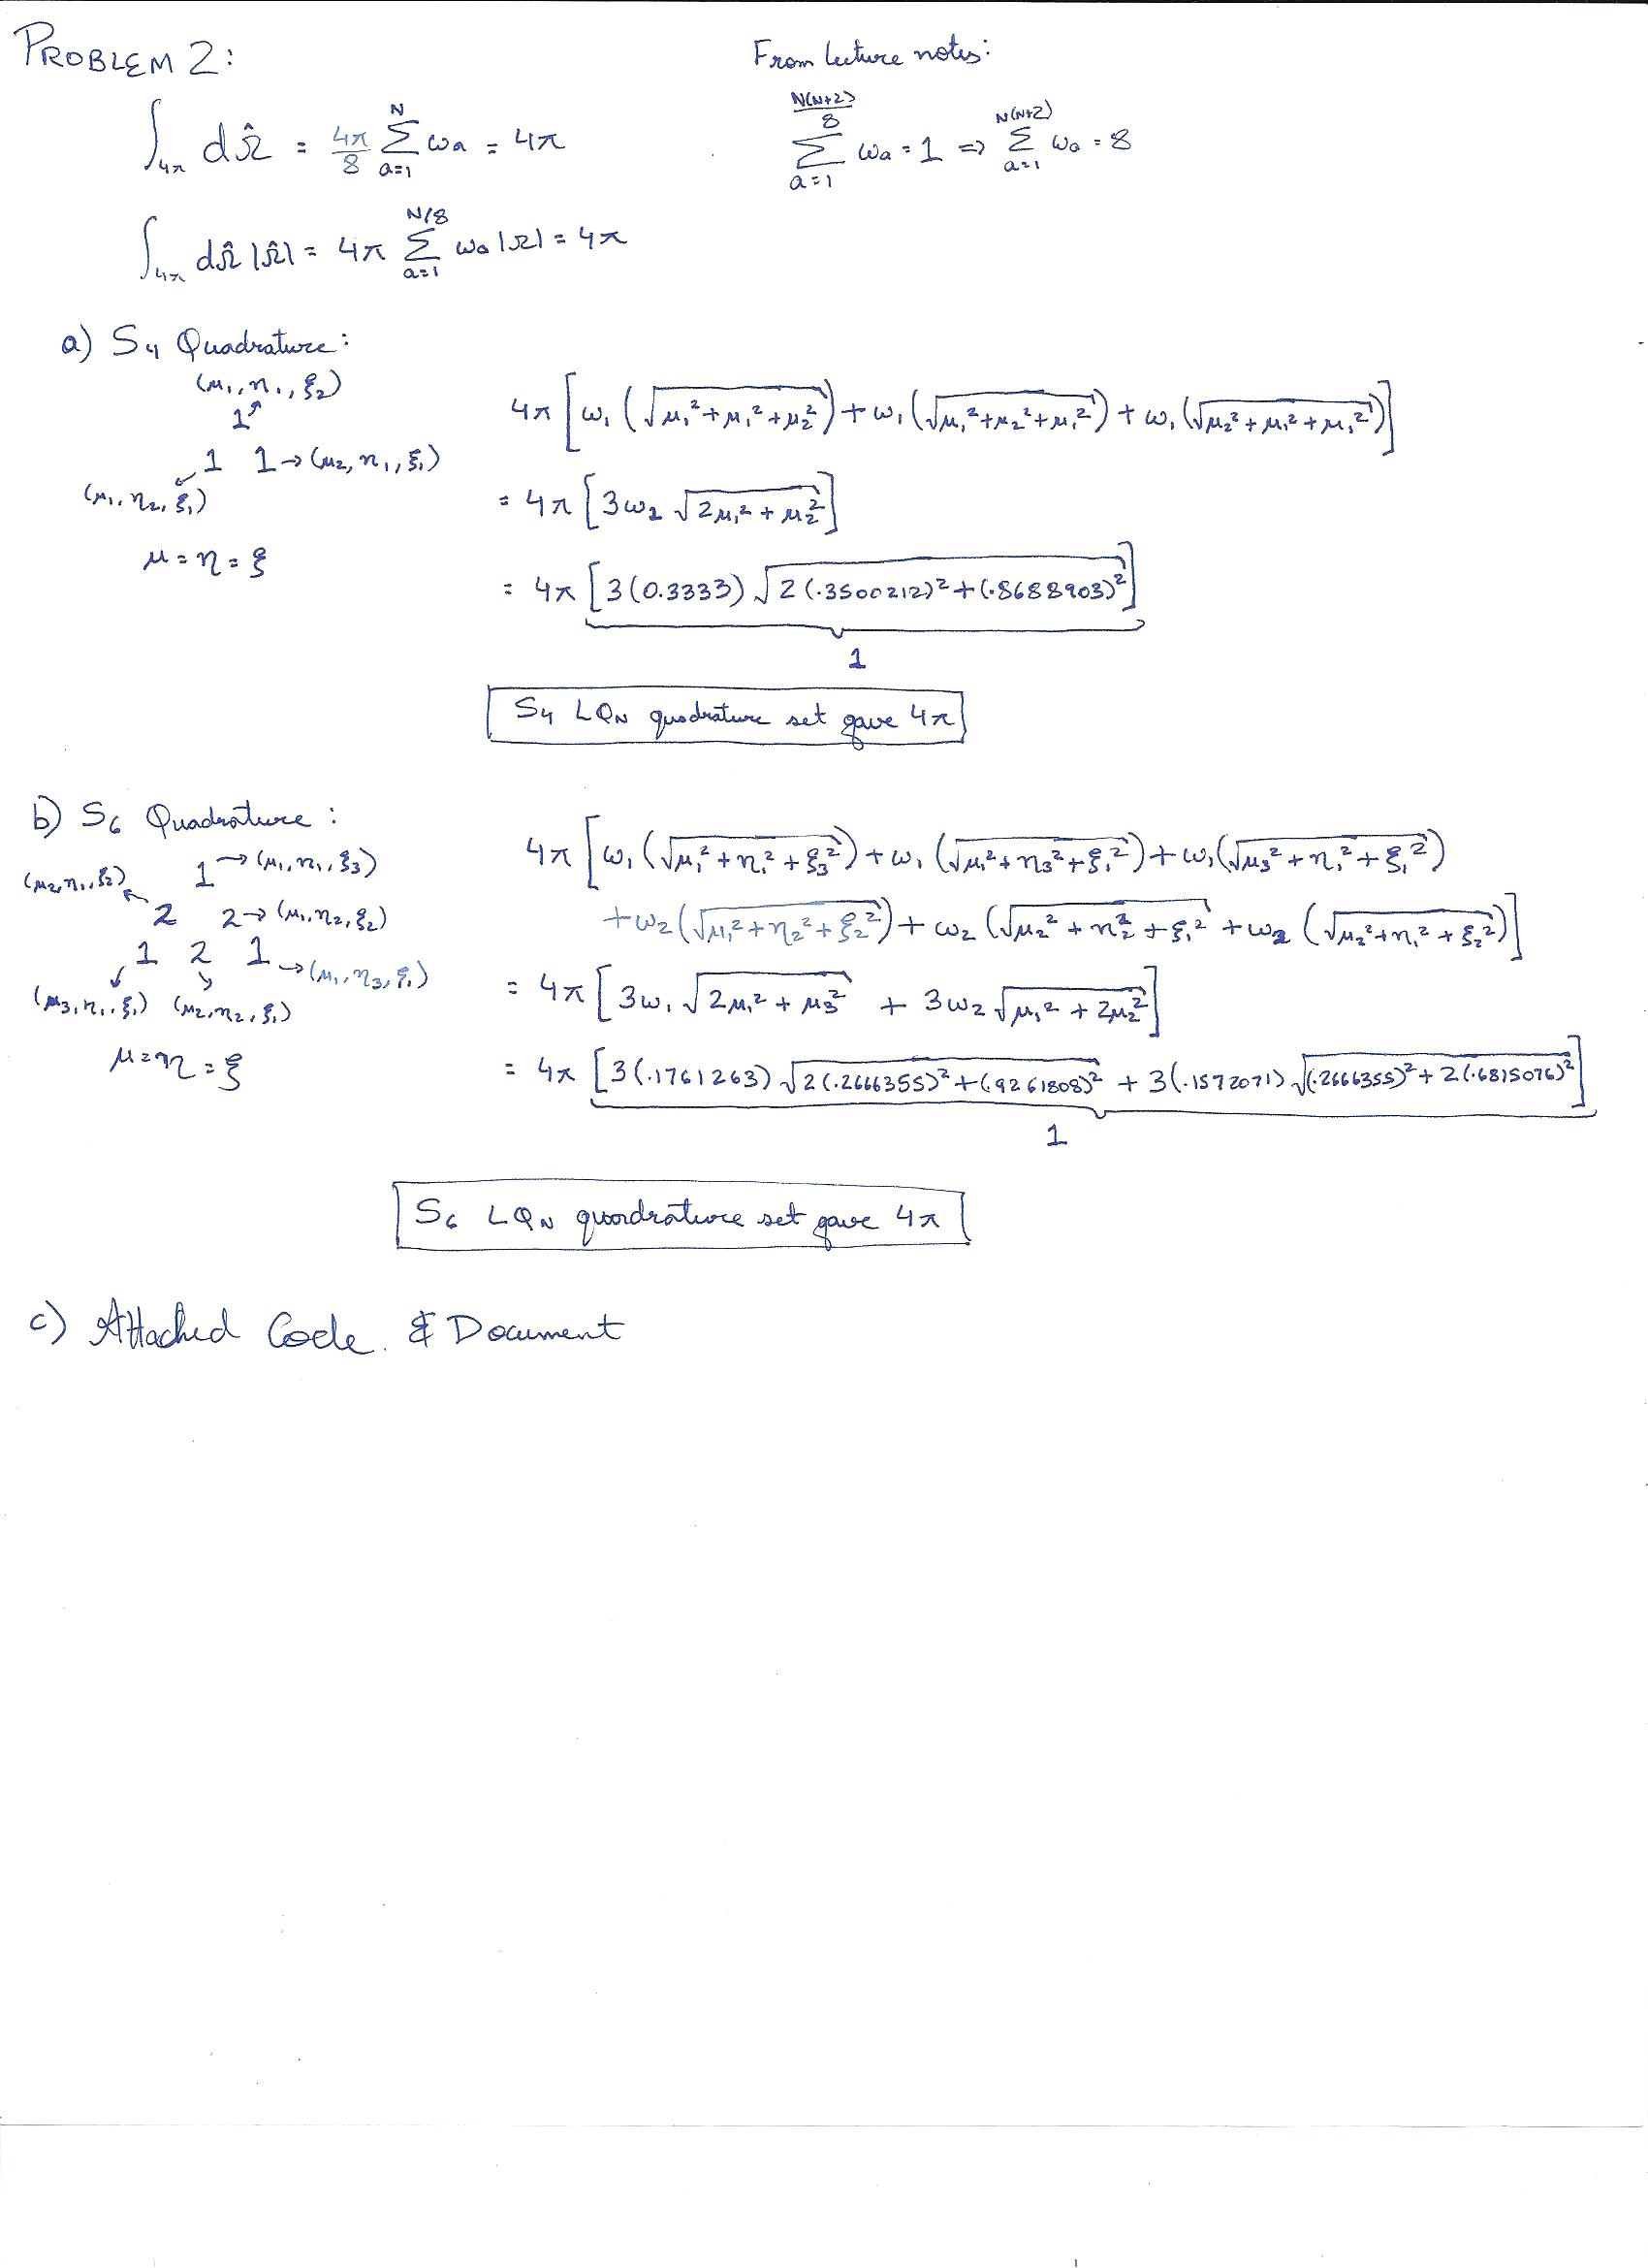 PROBLEM 2:
From lecture notes:
∫_{4π} dΩ̂ = 4π/8 Σ_{a=1}^{N} ω_a = 4π
Σ_{a=1}^{N(N+2)/8} ω_a = 1 => Σ_{a=1}^{N(N+2)} ω_a = 8
∫_{4π} dΩ̂ |Ω̂| = 4π Σ_{a=1}^{N/8} ω_a |Ω| = 4π
a) S₄ Quadrature:
(μ₁, η₁, ξ₂)
1
1 1 → (μ₂, η₁, ξ₁)
(μ₁, η₂, ξ₁)
μ = η = ξ
4π [ω₁ (√(μ₁² + μ₁² + μ₂²)) + ω₁ (√(μ₁² + μ₂² + μ₁²)) + ω₁ (√(μ₂² + μ₁² + μ₁²))]
= 4π [3ω₁ √(2μ₁² + μ₂²)]
= 4π [3(0.3333) √(2(.3500212)² + (.8688903)²)]
1
S₄ LQN quadrature set gave 4π
b) S₆ Quadrature:
1 → (μ₁, η₁, ξ₃)
(μ₂, η₁, ξ₂)
2 2 → (μ₁, η₂, ξ₂)
1 2 1 → (μ₁, η₃, ξ₁)
(μ₃, η₁, ξ₁) (μ₂, η₂, ξ₁)
μ = η = ξ
4π [ω₁ (√(μ₁² + η₁² + ξ₃²)) + ω₁ (√(μ₁² + η₃² + ξ₁²)) + ω₁ (√(μ₃² + η₁² + ξ₁²))
+ ω₂ (√(μ₁² + η₂² + ξ₂²)) + ω₂ (√(μ₂² + η₂² + ξ₁²) + ω₂ (√(μ₂² + η₁² + ξ₂²))]
= 4π [3ω₁ √(2μ₁² + μ₃²) + 3ω₂ √(μ₁² + 2μ₂²)]
= 4π [3(.1761263) √(2(.2666355)² + (.9261808)²) + 3(.1572071) √((.2666355)² + 2(.6815076)²)]
1
S₆ LQN quadrature set gave 4π
c) Attached Code. & Document